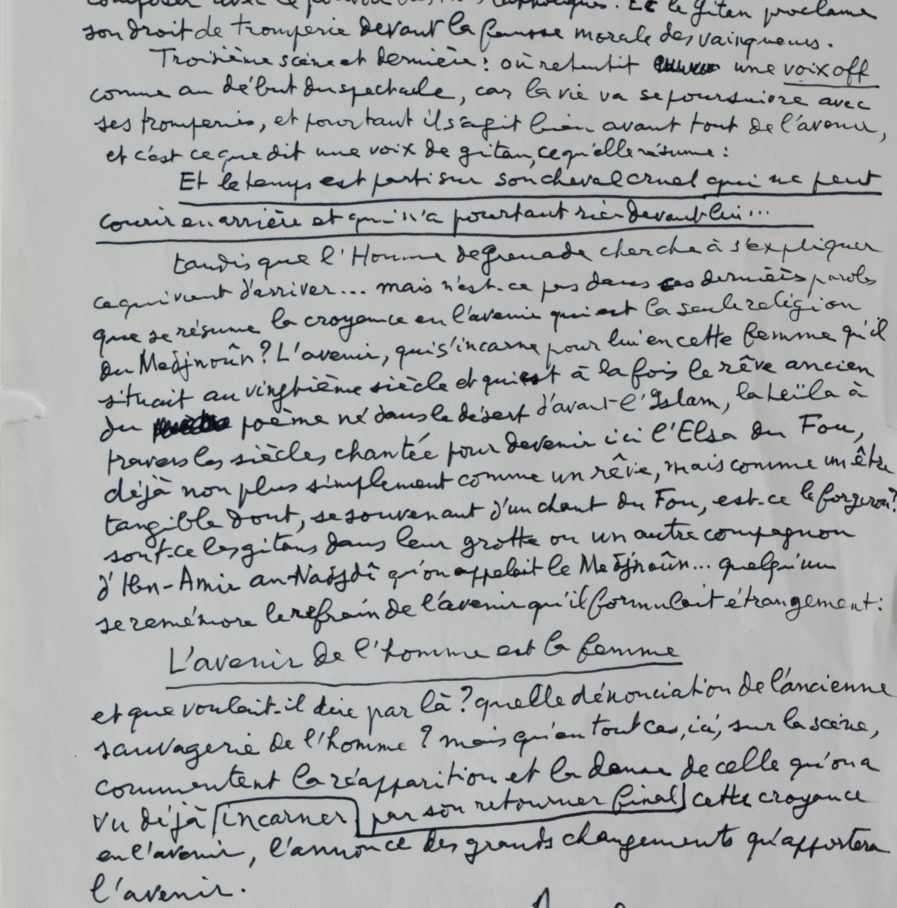 composer avec le pouvoir des rois catholiques. Et le gitan proclame
son droit de tromperie devant la fausse morale des vainqueurs.
Troisième scène et dernière : où retentit une voix off
comme au début du spectacle, car la vie va se poursuivre avec
ses tromperies, et pourtant il s'agit bien avant tout de l'avenir,
et c'est ce que dit une voix de gitan, ce qu'elle résume :
Et le temps est parti sur son cheval cruel qui ne peut
courir en arrière et qui n'a pourtant rien devant lui...
tandis que l'Homme de Grenade cherche à s'expliquer
ce qui vient d'arriver... mais n'est-ce pas dans ces dernières paroles
que se résume la croyance en l'avenir qui est la seule religion
du Medjnoûn ? L'avenir, qui s'incarne pour lui en cette femme qu'il
situait au vingtième siècle et qui est à la fois le rêve ancien
du poème né dans le désert d'avant l'Islam, la Leïla à
travers les siècles chantée pour devenir ici l'Elsa du Fou,
déjà non plus simplement comme un rêve, mais comme un être
tangible dont, se souvenant d'un chant du Fou, est-ce le forgeron ?
sont-ce les gitans dans leur grotte ou un autre compagnon
d'Ibn-Amir an-Nadjdî qu'on appelait le Medjnoûn... quelqu'un
se remémore le refrain de l'avenir qu'il formulait étrangement :
L'avenir de l'homme est la femme
et que voulait-il dire par là ? quelle dénonciation de l'ancienne
sauvagerie de l'homme ? mais qu'en tout cas, ici, sur la scène,
commentent la réapparition et la danse de celle qu'on a
vu déjà incarner par son retourner final cette croyance
en l'avenir, l'annonce des grands changements qu'apportera
l'avenir.